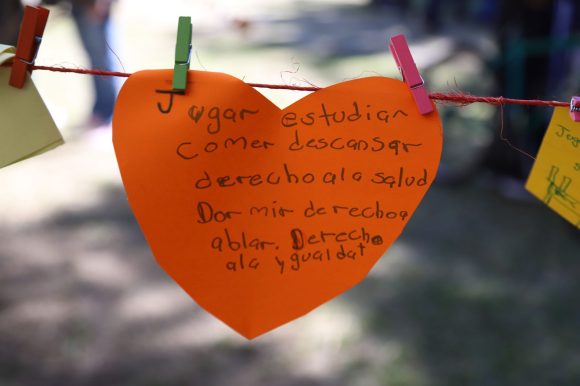 Jugar estudiar
comer descansar
derecho ala salud
Dormir derecho a
ablar. Derecho
ala ygualdat